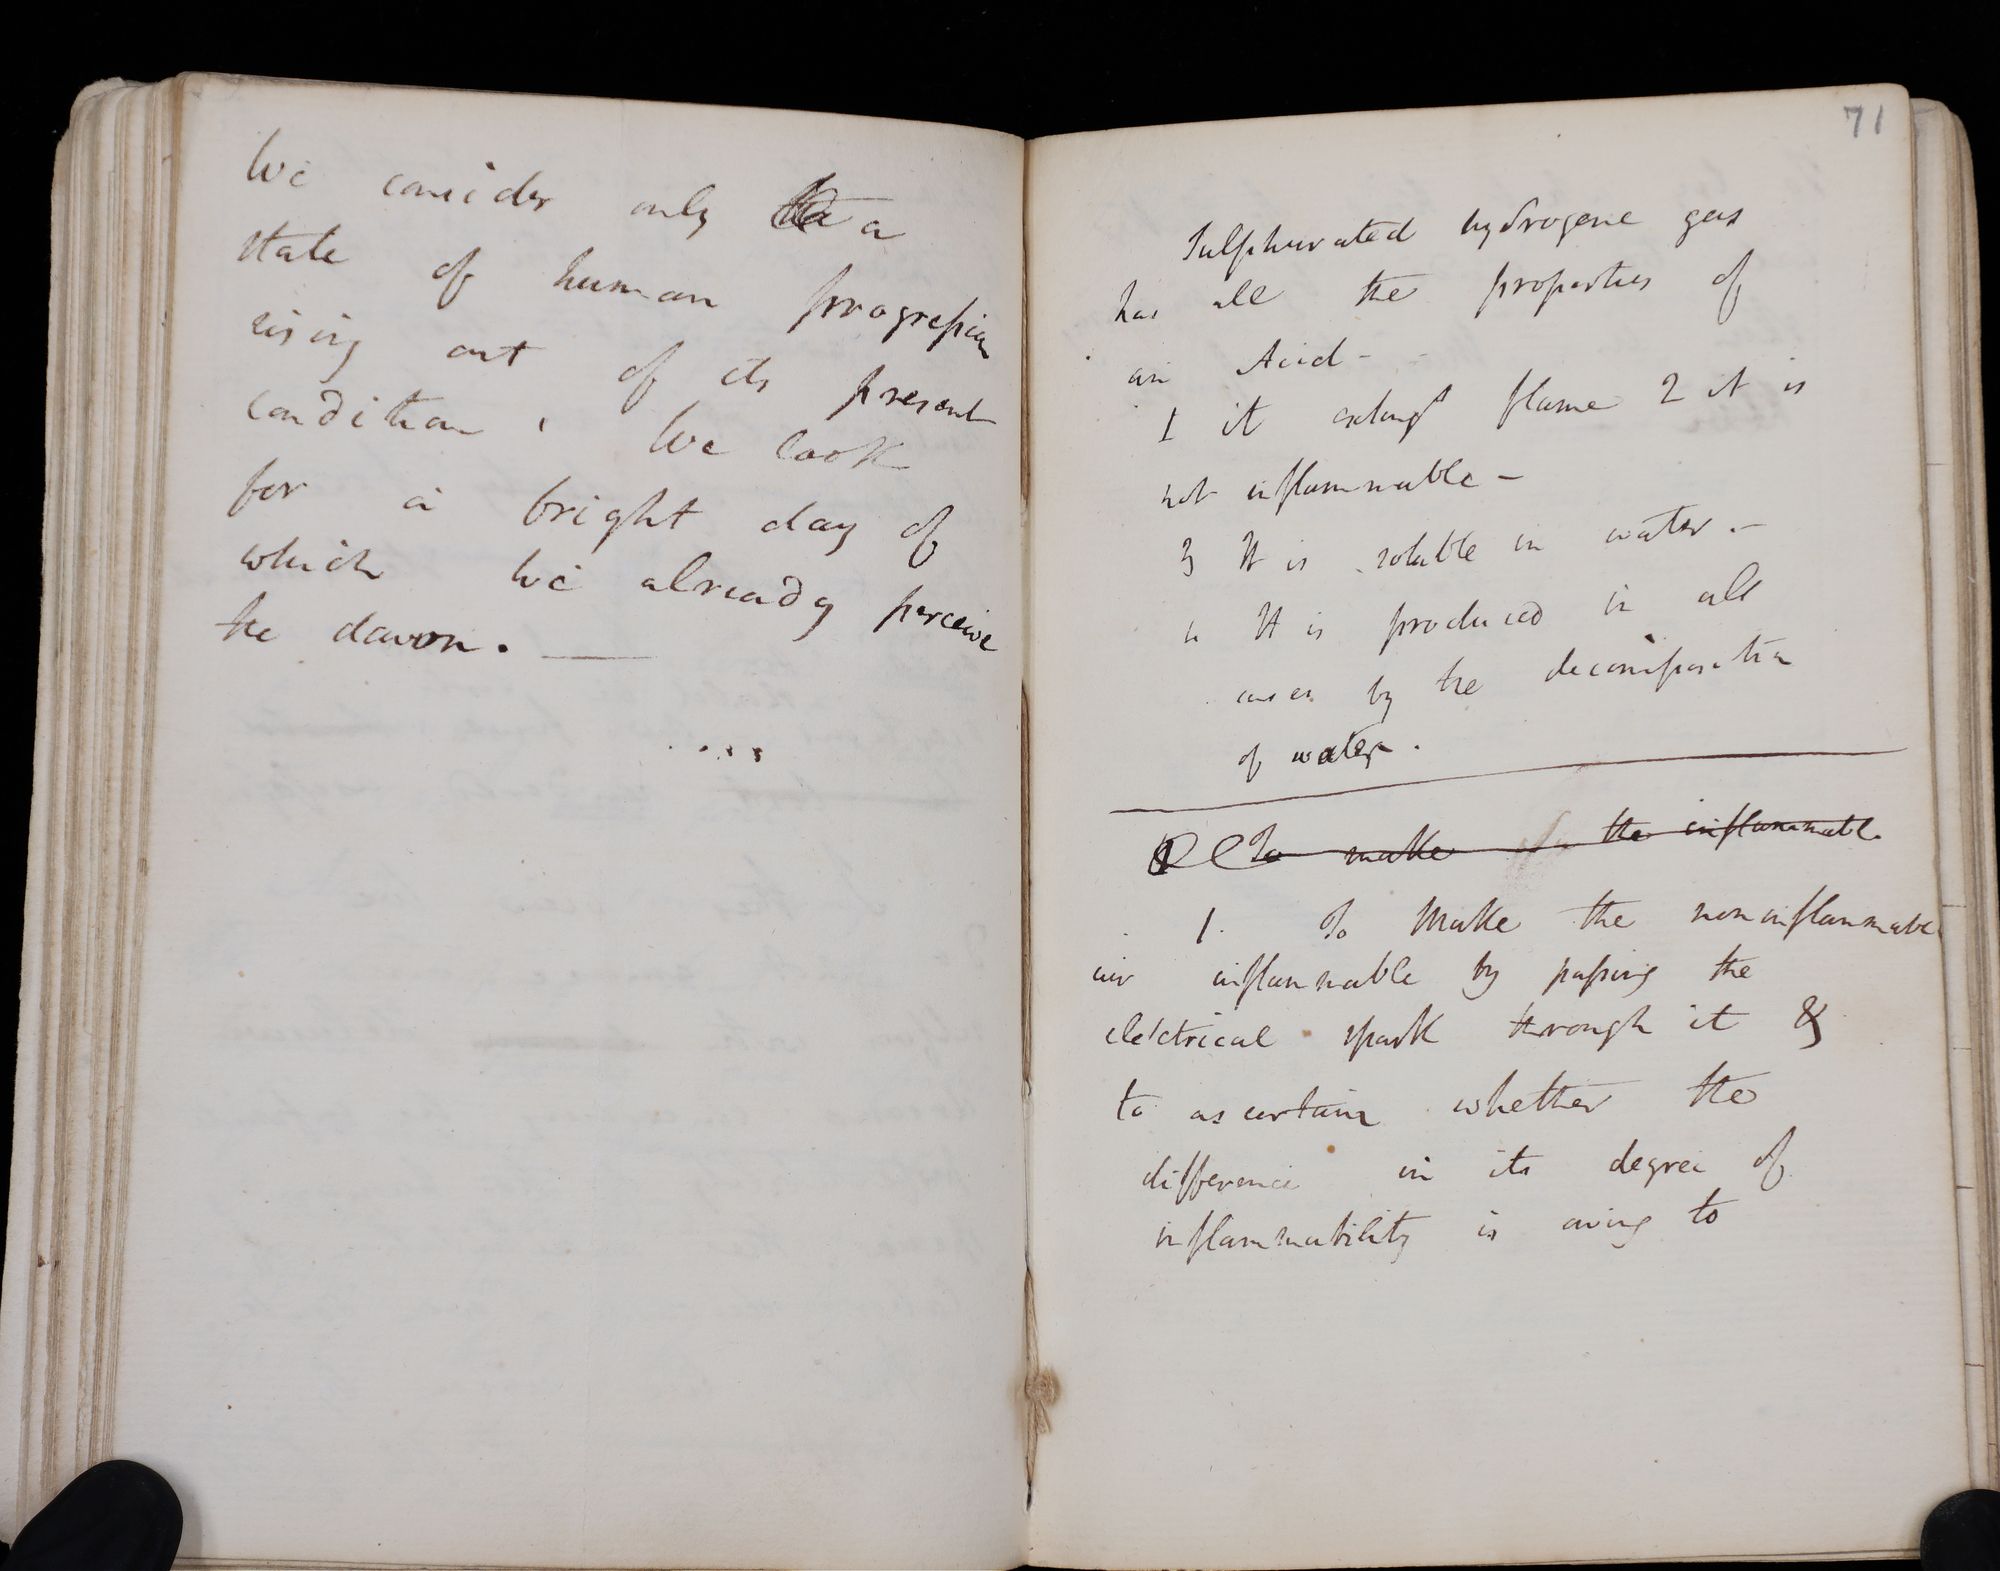 We consider only a
state of human progression
rising out of its present
condition, We look
for a bright day of
which we already perceive
the dawn.
71
Sulphurated hydrogene gas
has all the properties of
an Acid -
1 it extingt flame 2 it is
not inflammable -
3 It is soluble in water. -
4 It is produced in all
cases by the decomposition
of water.
To make the inflammable
1. To Make the noninflammable
air inflammable by passing the
electrical spark through it &
to ascertain whether the
difference in its degree of
inflammability is owing to